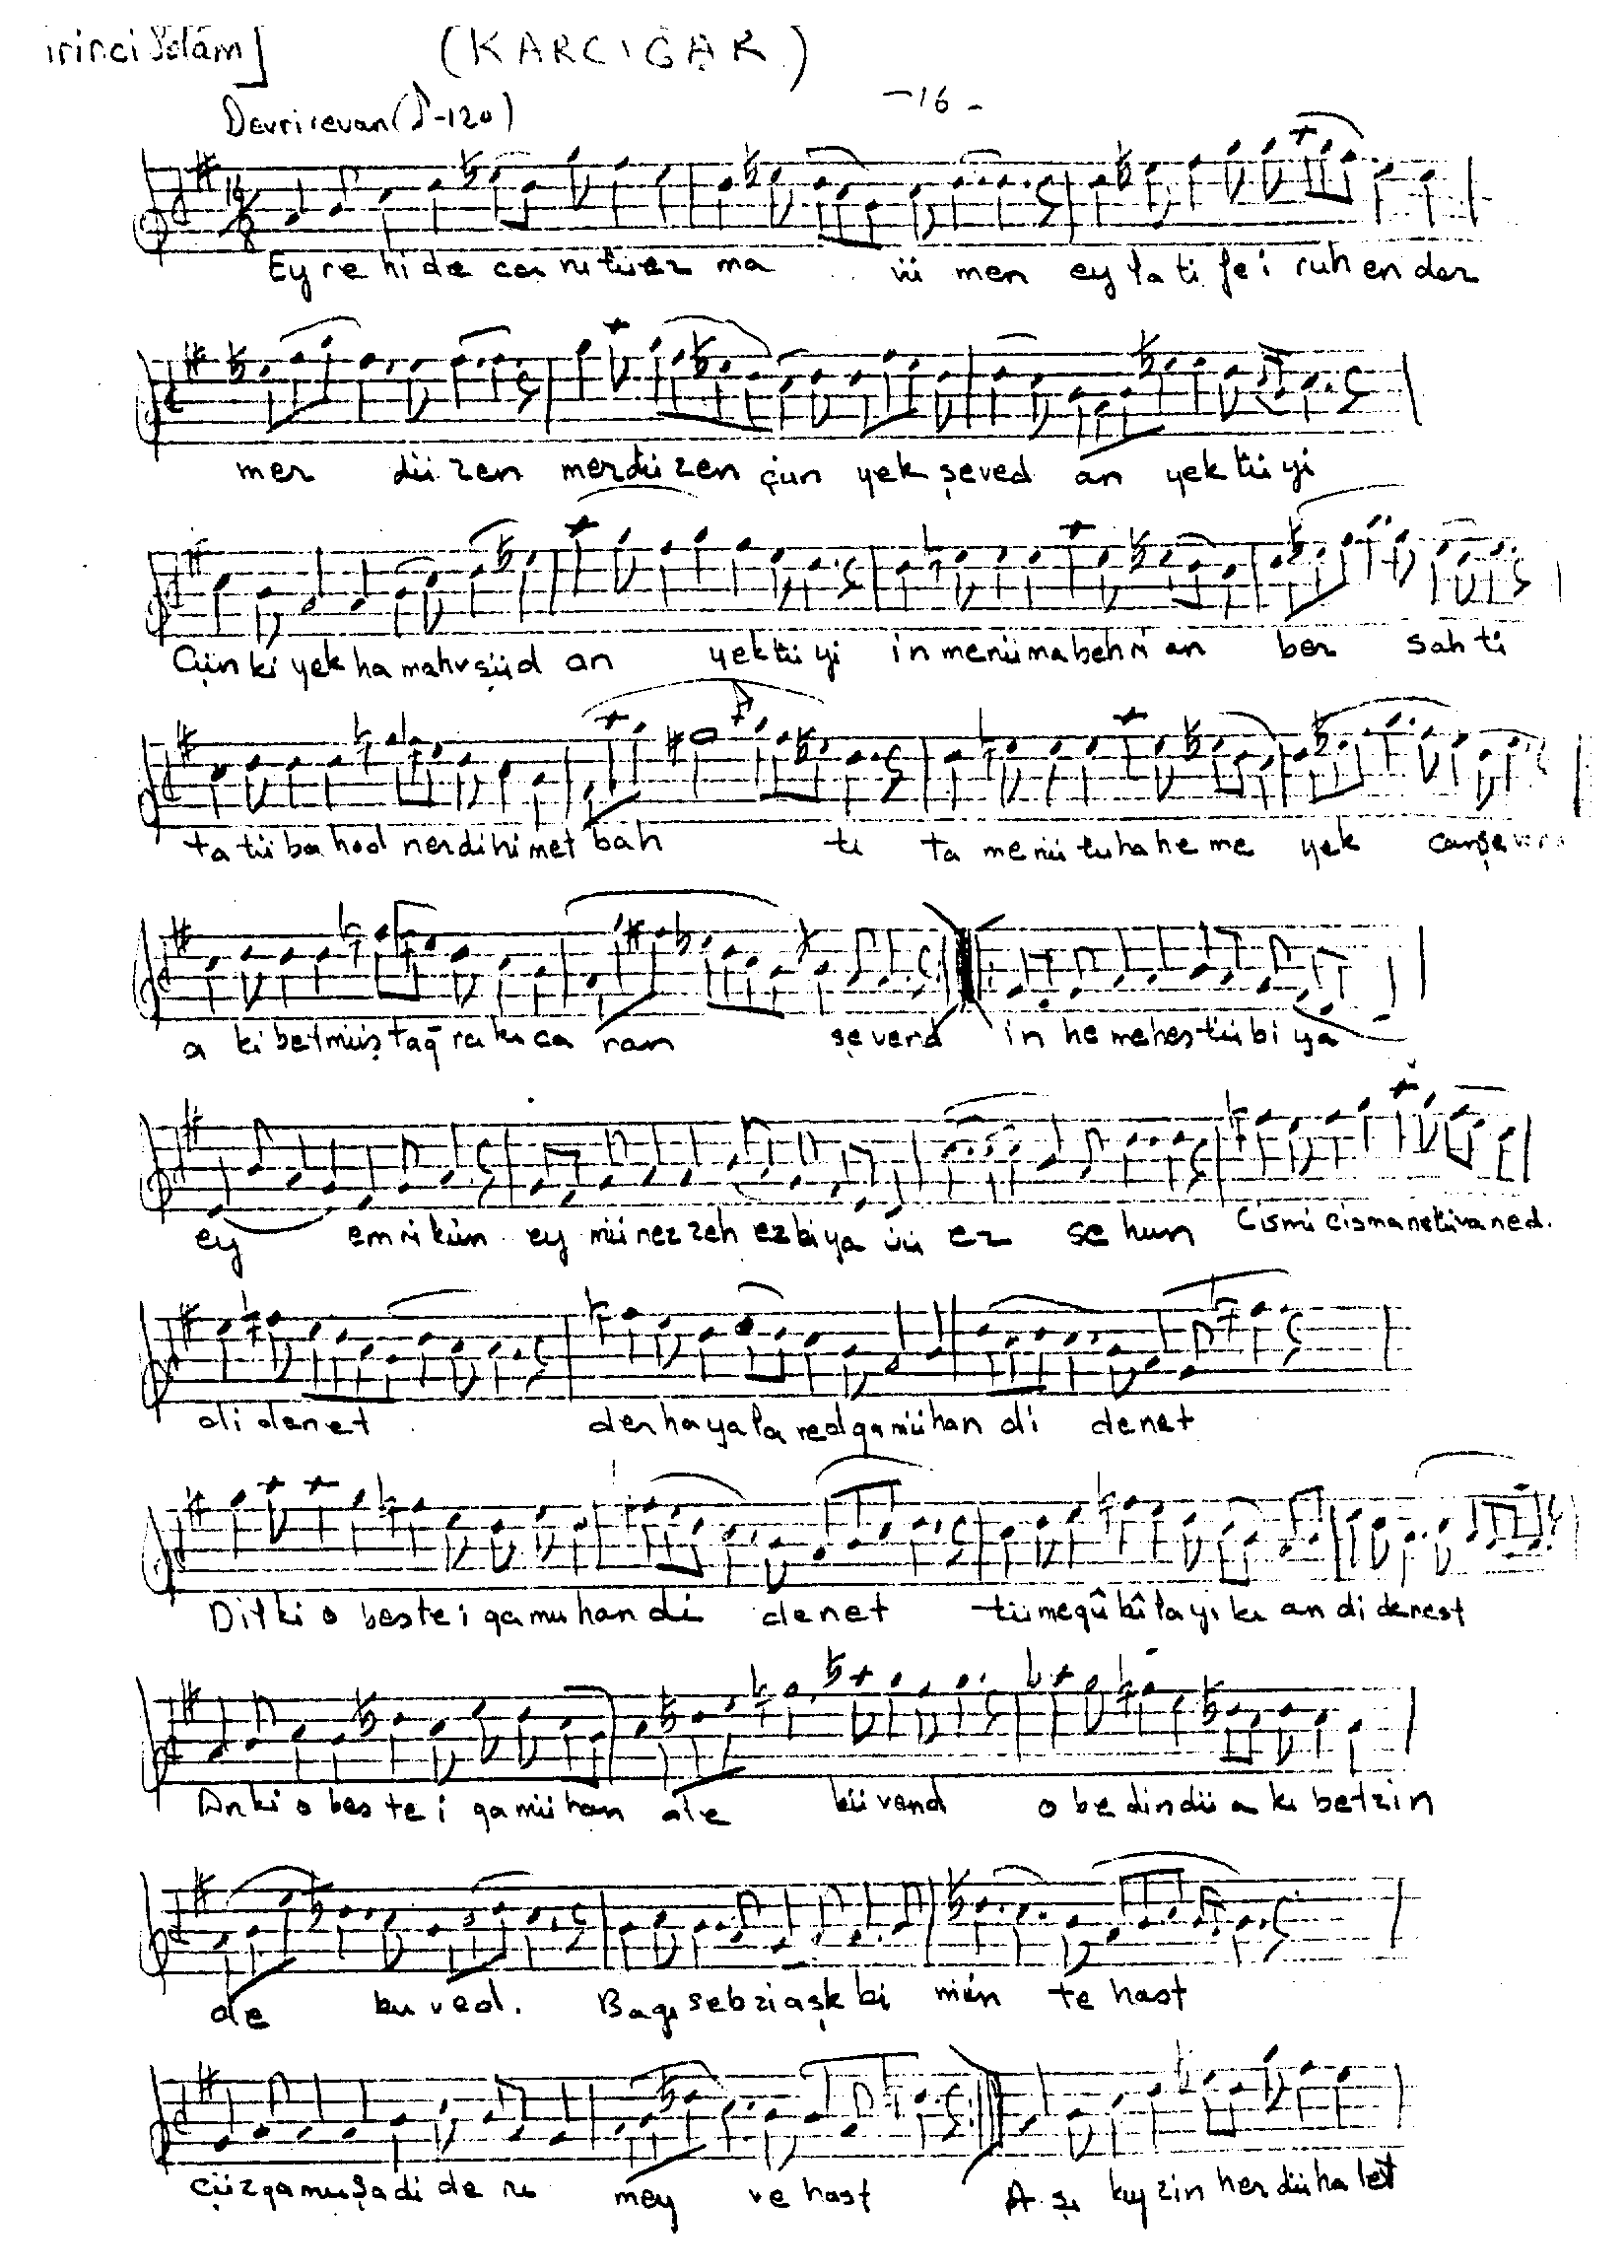 irinci Selâm] (KARCIĞAR)
-16-
Devrirevan (♪-120)
14/8
Ey re hi de ca ni tü ez ma vü men ey la ti fe i ruh en der
mer dü zen merdü zen çün yek şeved an yek tü yi
Çün ki yek ha mahv şüd an yek tü yi in menü ma beh ri an ber sah ti
ta tü ba hod nerdi hi met bah ti ta menü tu ha he me yek can
a ki bet müs tağ ra kı ca nan şe vend in he me hes tü bi ya
ey em ri kün ey mü nez zeh ez bi ya vü ez se hun Cismi cisma ne tüva ned
di denet der ha ya la red gamü han di denet
Dil ki o bes te i gamu han di de net tü megû kî la yı kı an di denest
An ki o bes te i ga mü han de bü vend o be din dü a kı bet zin
de bu ved. Bagı seb zi aşk bi mün te hast
cüz ga mu şa di de ru mey ve hast A şı kıy zin her dü ha let